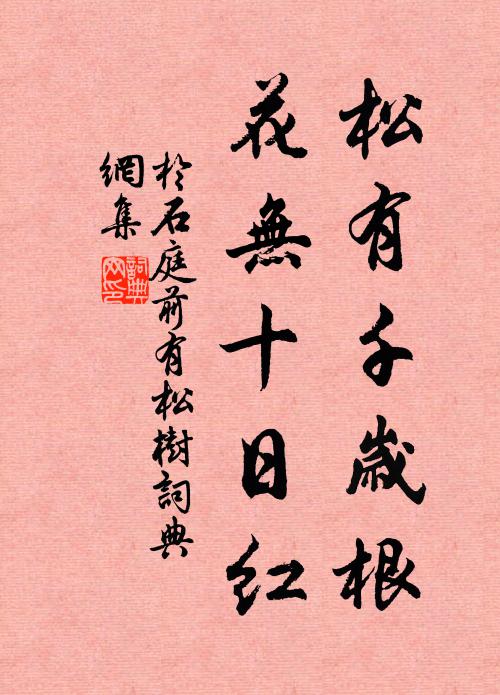 松有千歲根
花無十日紅
於石庭前有松樹詞典
網集
詞典
网印